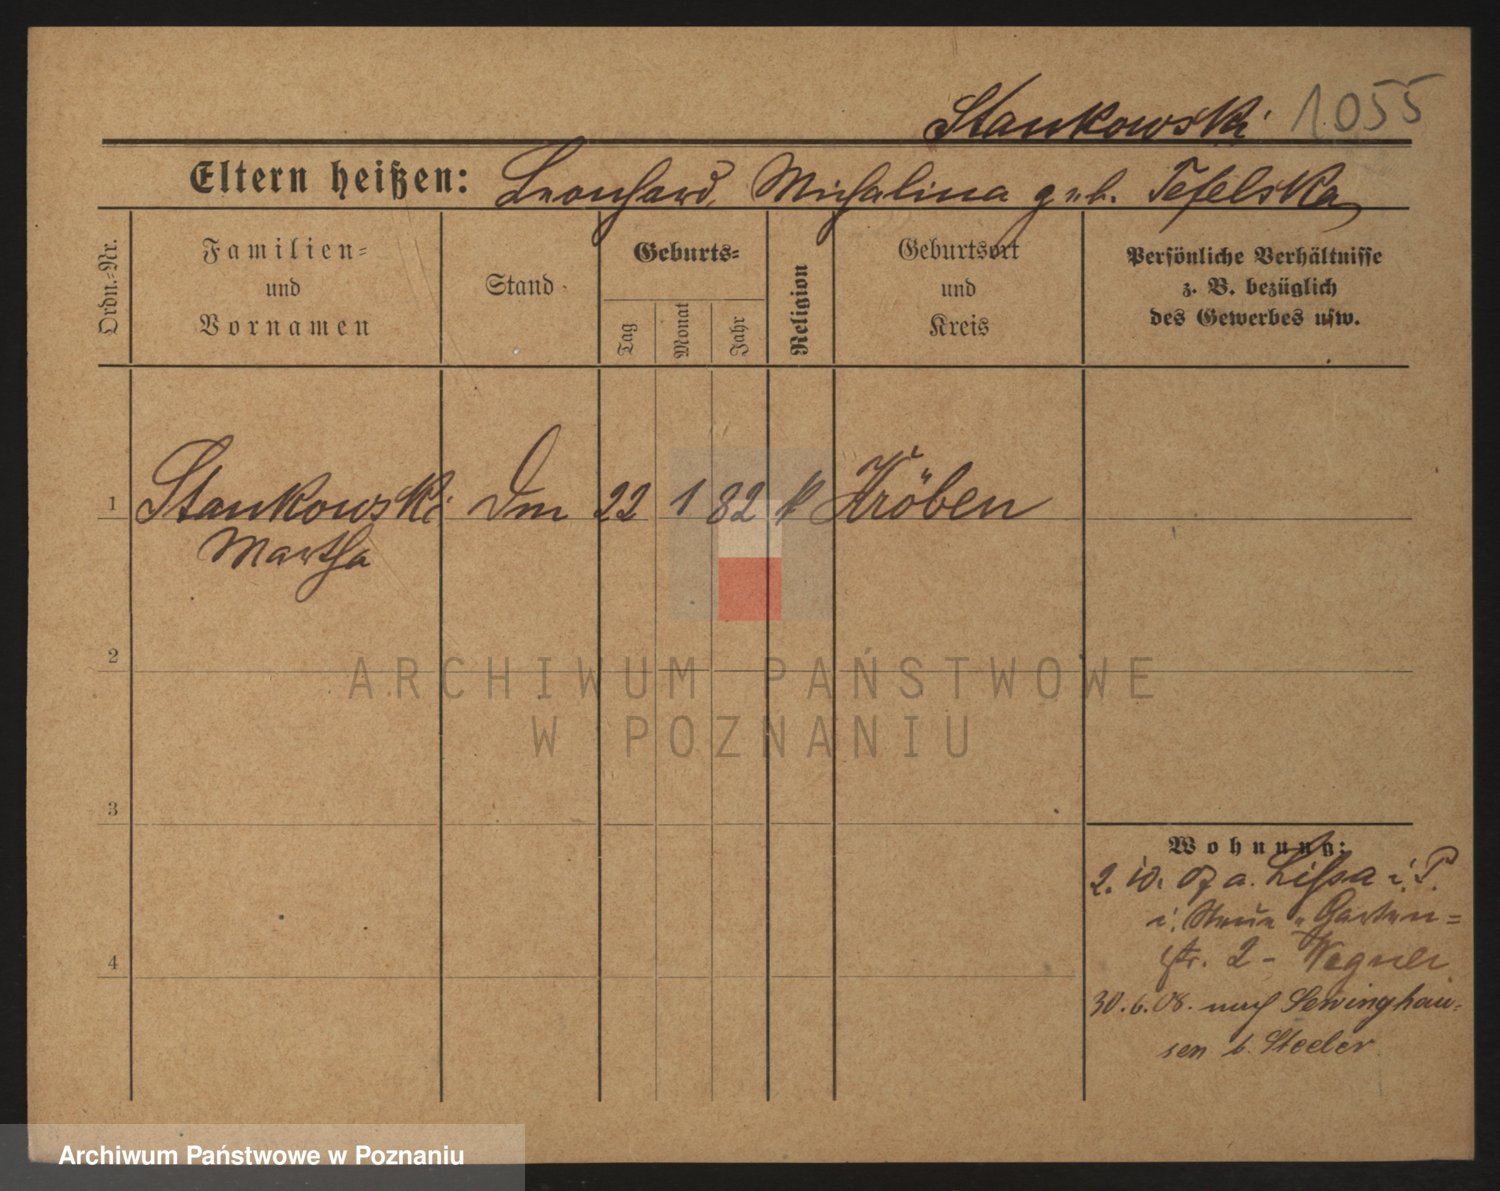 Stankowski 1055
Eltern heißen: Leonhard, Michalina geb. Tefelska
Ordn.-Nr.
Familien-
und
Vornamen
Stand
Geburts-
Tag
Monat
Jahr
Religion
Geburtsort
und
Kreis
Persönliche Verhältnisse
z. B. bezüglich
des Gewerbes usw.
1 Stankowski Dm 22 1 82 k Kröben
Martha
2
ARCHIWUM PAŃSTWOWE
W POZNANIU
3
Wohnung:
2. 10. 07 a. Lissa i. P.
i. Garten=
4
str. 2 - Wegner
30. 6. 08. nach Sevinghau-
sen b. Steeler
Archiwum Państwowe w Poznaniu